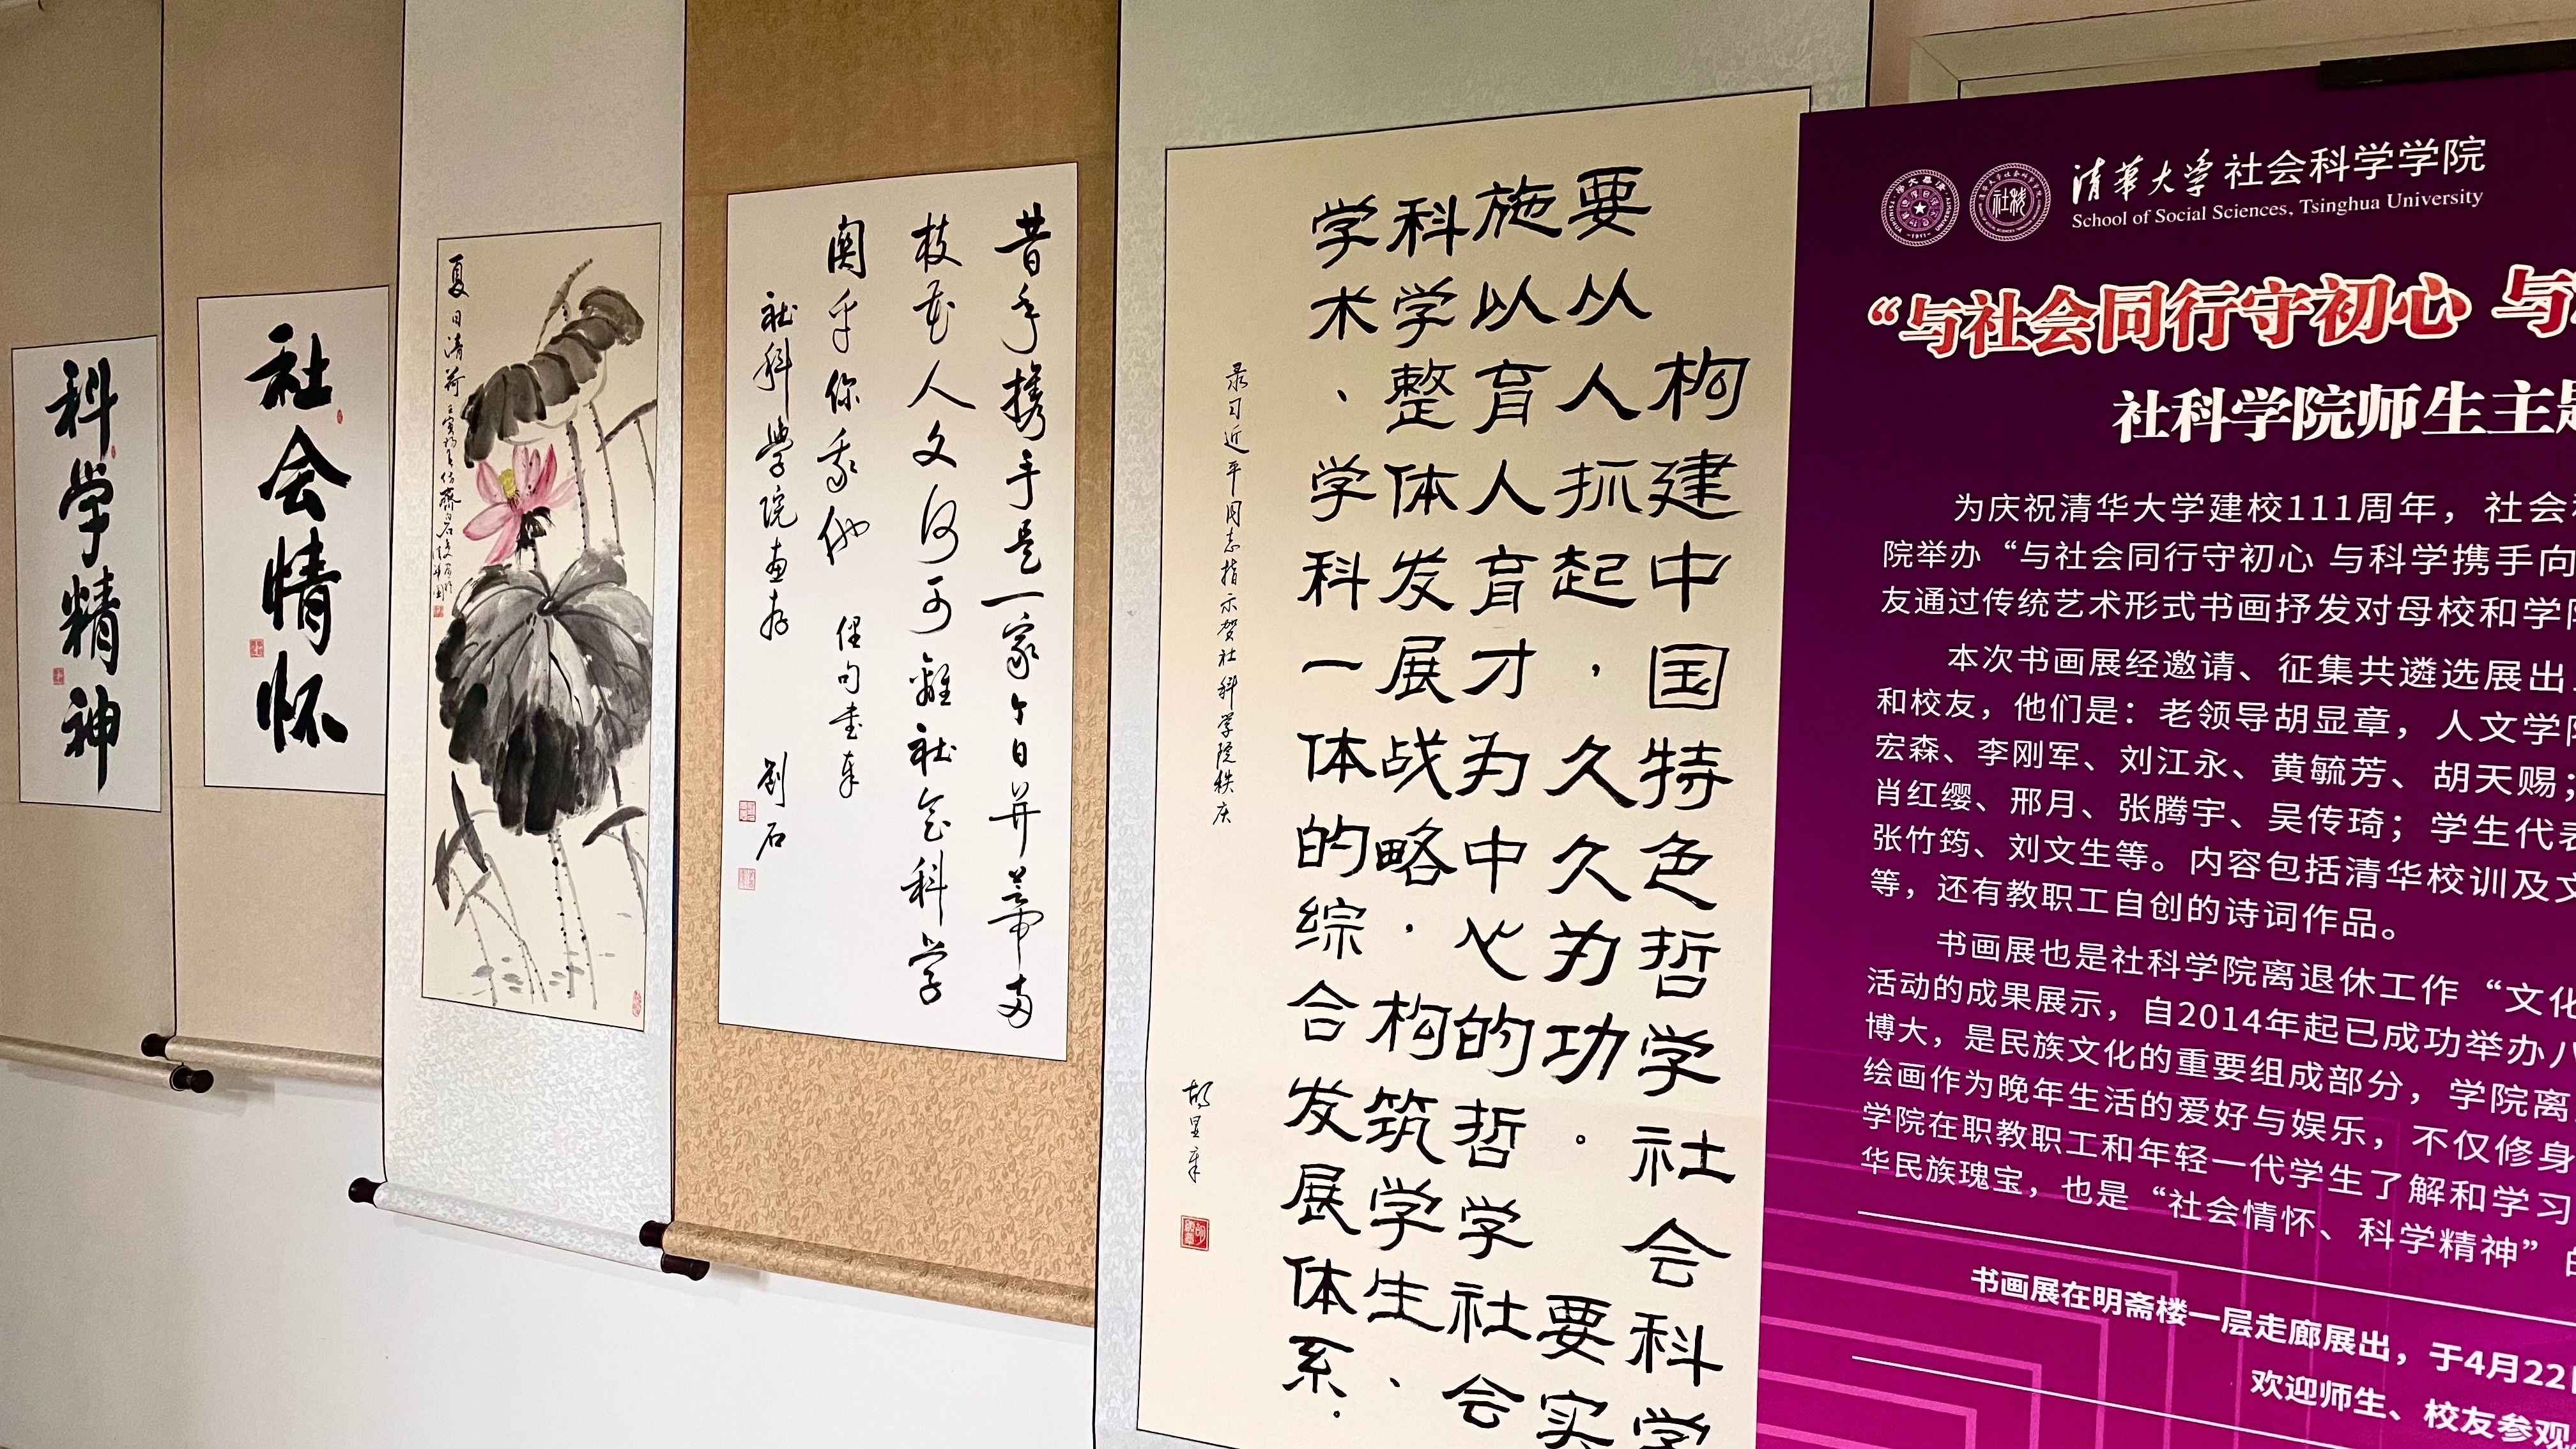 科学精神
社会情怀
夏日清荷
昔年携手是一家今日并蒂两
枝花人文何可离社会科学
关乎你我他 俚句书奉
社科学院画存 刘石
构建中国特色哲学社会科学
要从人人抓起，久久为功。要实
施以育人育才为中心的哲学社会
科学整体发展战略，构筑学生、
学术、学科一体的综合发展体系。
录习近平同志指示贺社科学院秩庆
胡显章
清华大学社会科学学院
School of Social Sciences, Tsinghua University
“与社会同行守初心 与
社科学院师生主题
为庆祝清华大学建校111周年，社会
院举办“与社会同行守初心 与科学携手向
友通过传统艺术形式书画抒发对母校和学
本次书画展经邀请、征集共遴选展出
和校友，他们是：老领导胡显章，人文学
宏森、李刚军、刘江永、黄毓芳、胡天赐；
肖红缨、邢月、张腾宇、吴传琦；学生代表
张竹筠、刘文生等。内容包括清华校训及
等，还有教职工自创的诗词作品。
书画展也是社科学院离退休工作“文化
活动的成果展示，自2014年起已成功举办八
博大，是民族文化的重要组成部分，学院离
绘画作为晚年生活的爱好与娱乐，不仅修身
学院在职教职工和年轻一代学生了解和学习
华民族瑰宝，也是“社会情怀、科学精神”的
书画展在明斋楼一层走廊展出，于4月22日
欢迎师生、校友参观